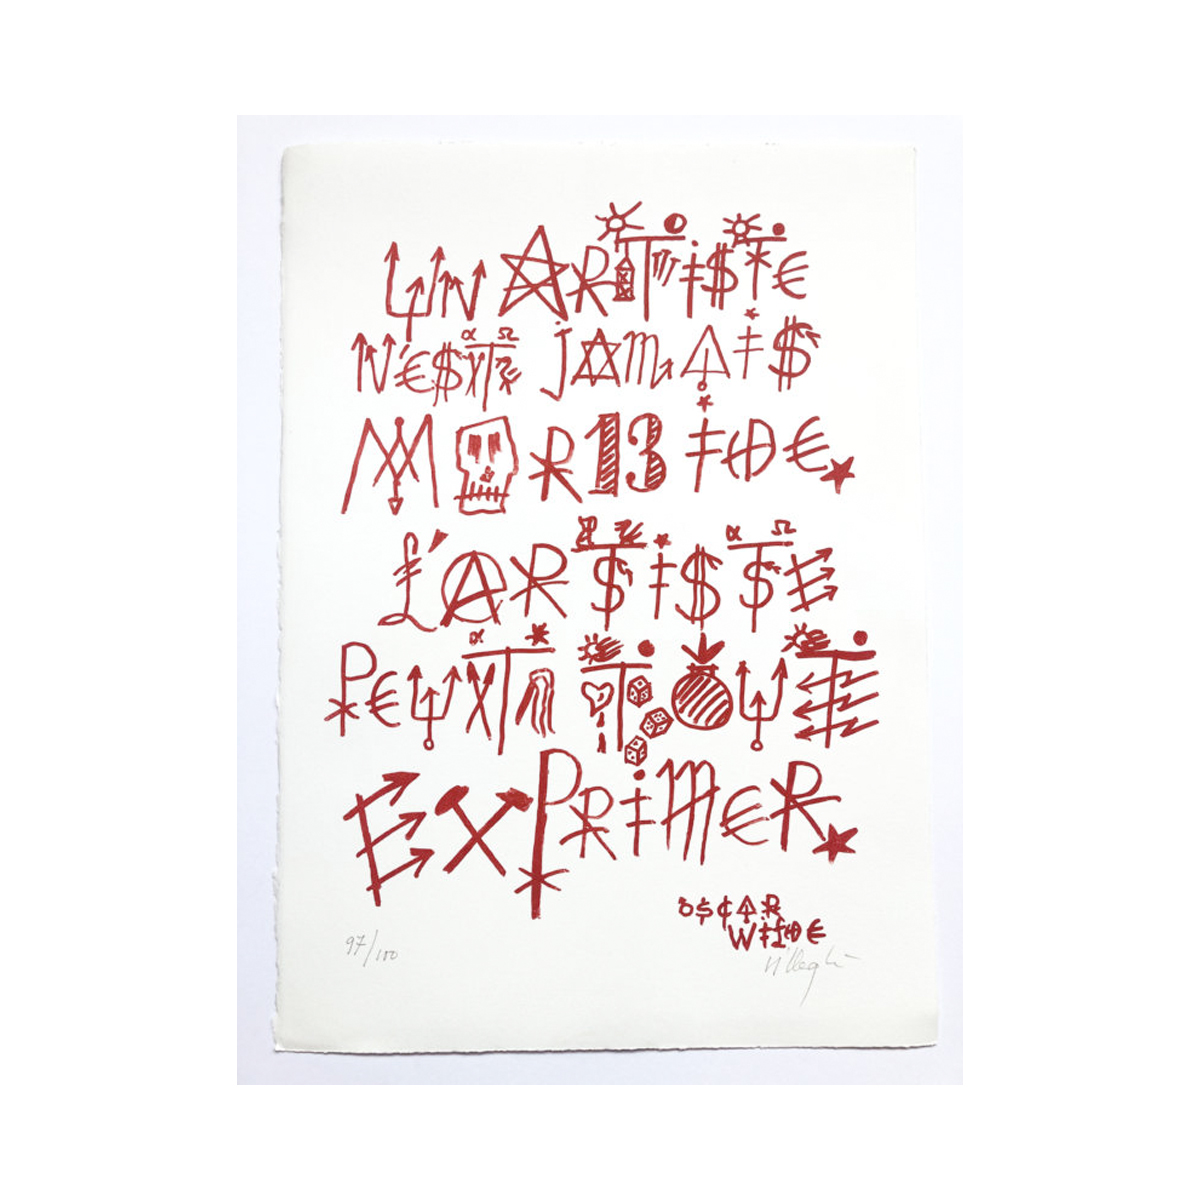 UN ARTISTE
N'EST JAMAIS
MORBIDE
L'ARTISTE
PEUT TOUT
EXPRIMER
OSCAR
WILDE
97/100
Villeglé